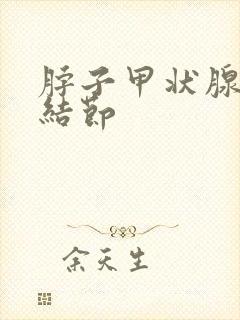 脖子甲状腺
結節
余天生